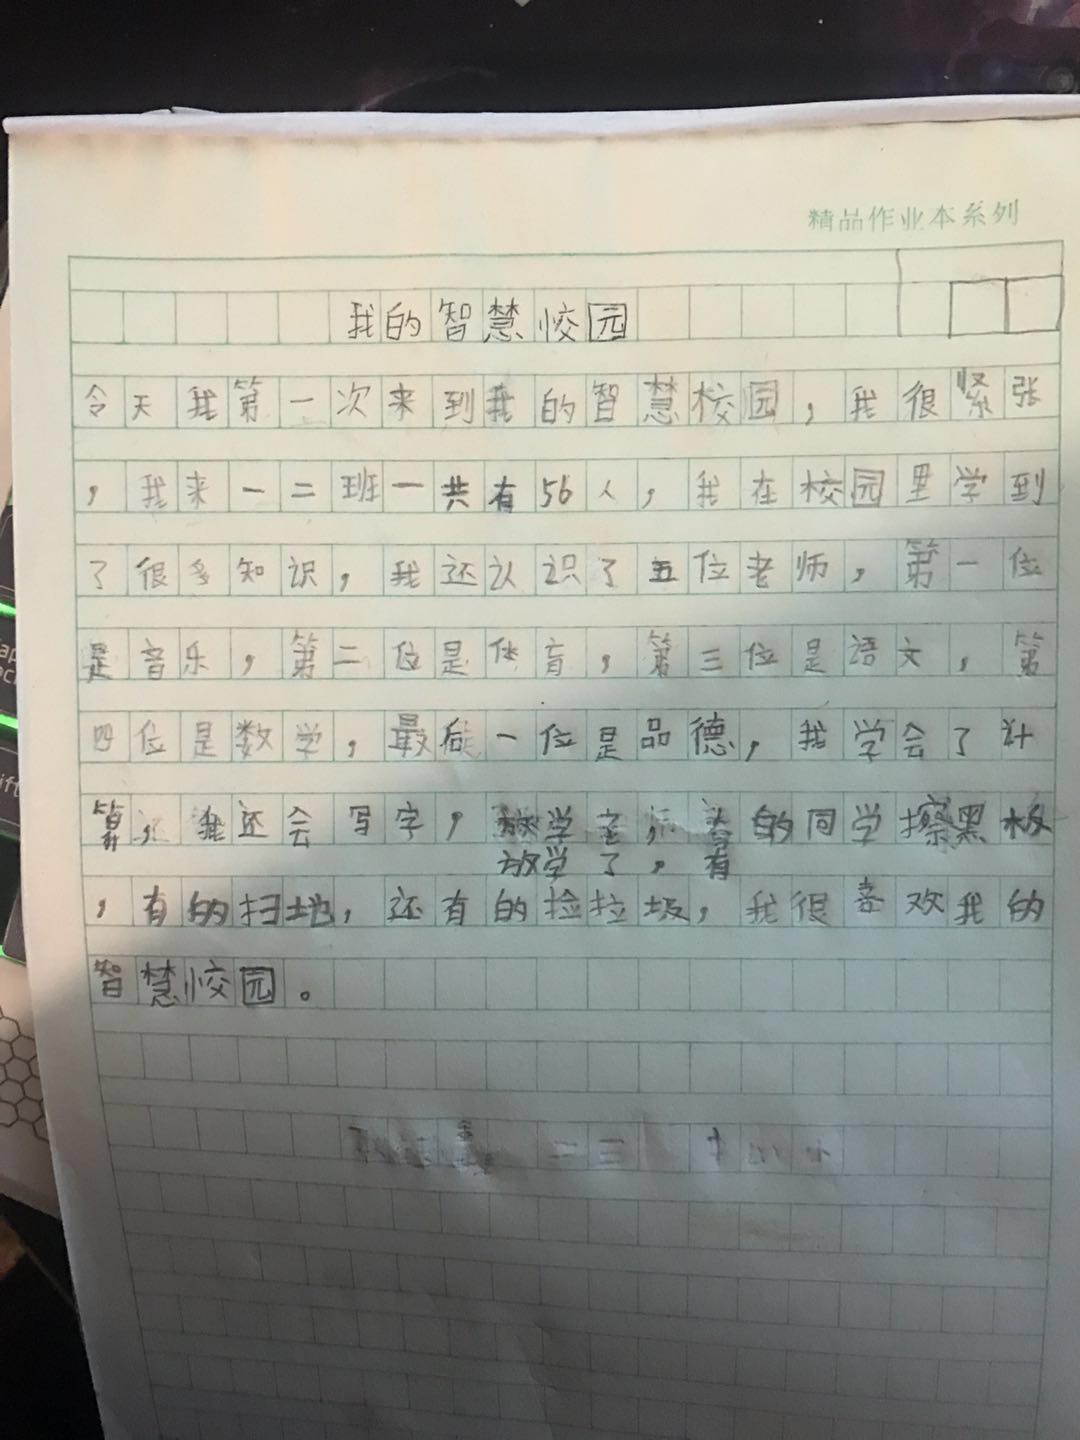 精品作业本系列
我的智慧校园
今天我第一次来到我的智慧校园，我很紧张
，我来一二班一共有56人，我在校园里学到
了很多知识，我还认识了五位老师，第一位
是音乐，第二位是体育，第三位是语文，第
四位是数学，最后一位是品德，我学会了计
算，我还会写字，放学的同学擦黑板
放学了，有
，有的扫地，还有的捡垃圾，我很喜欢我的
智慧校园。
二三